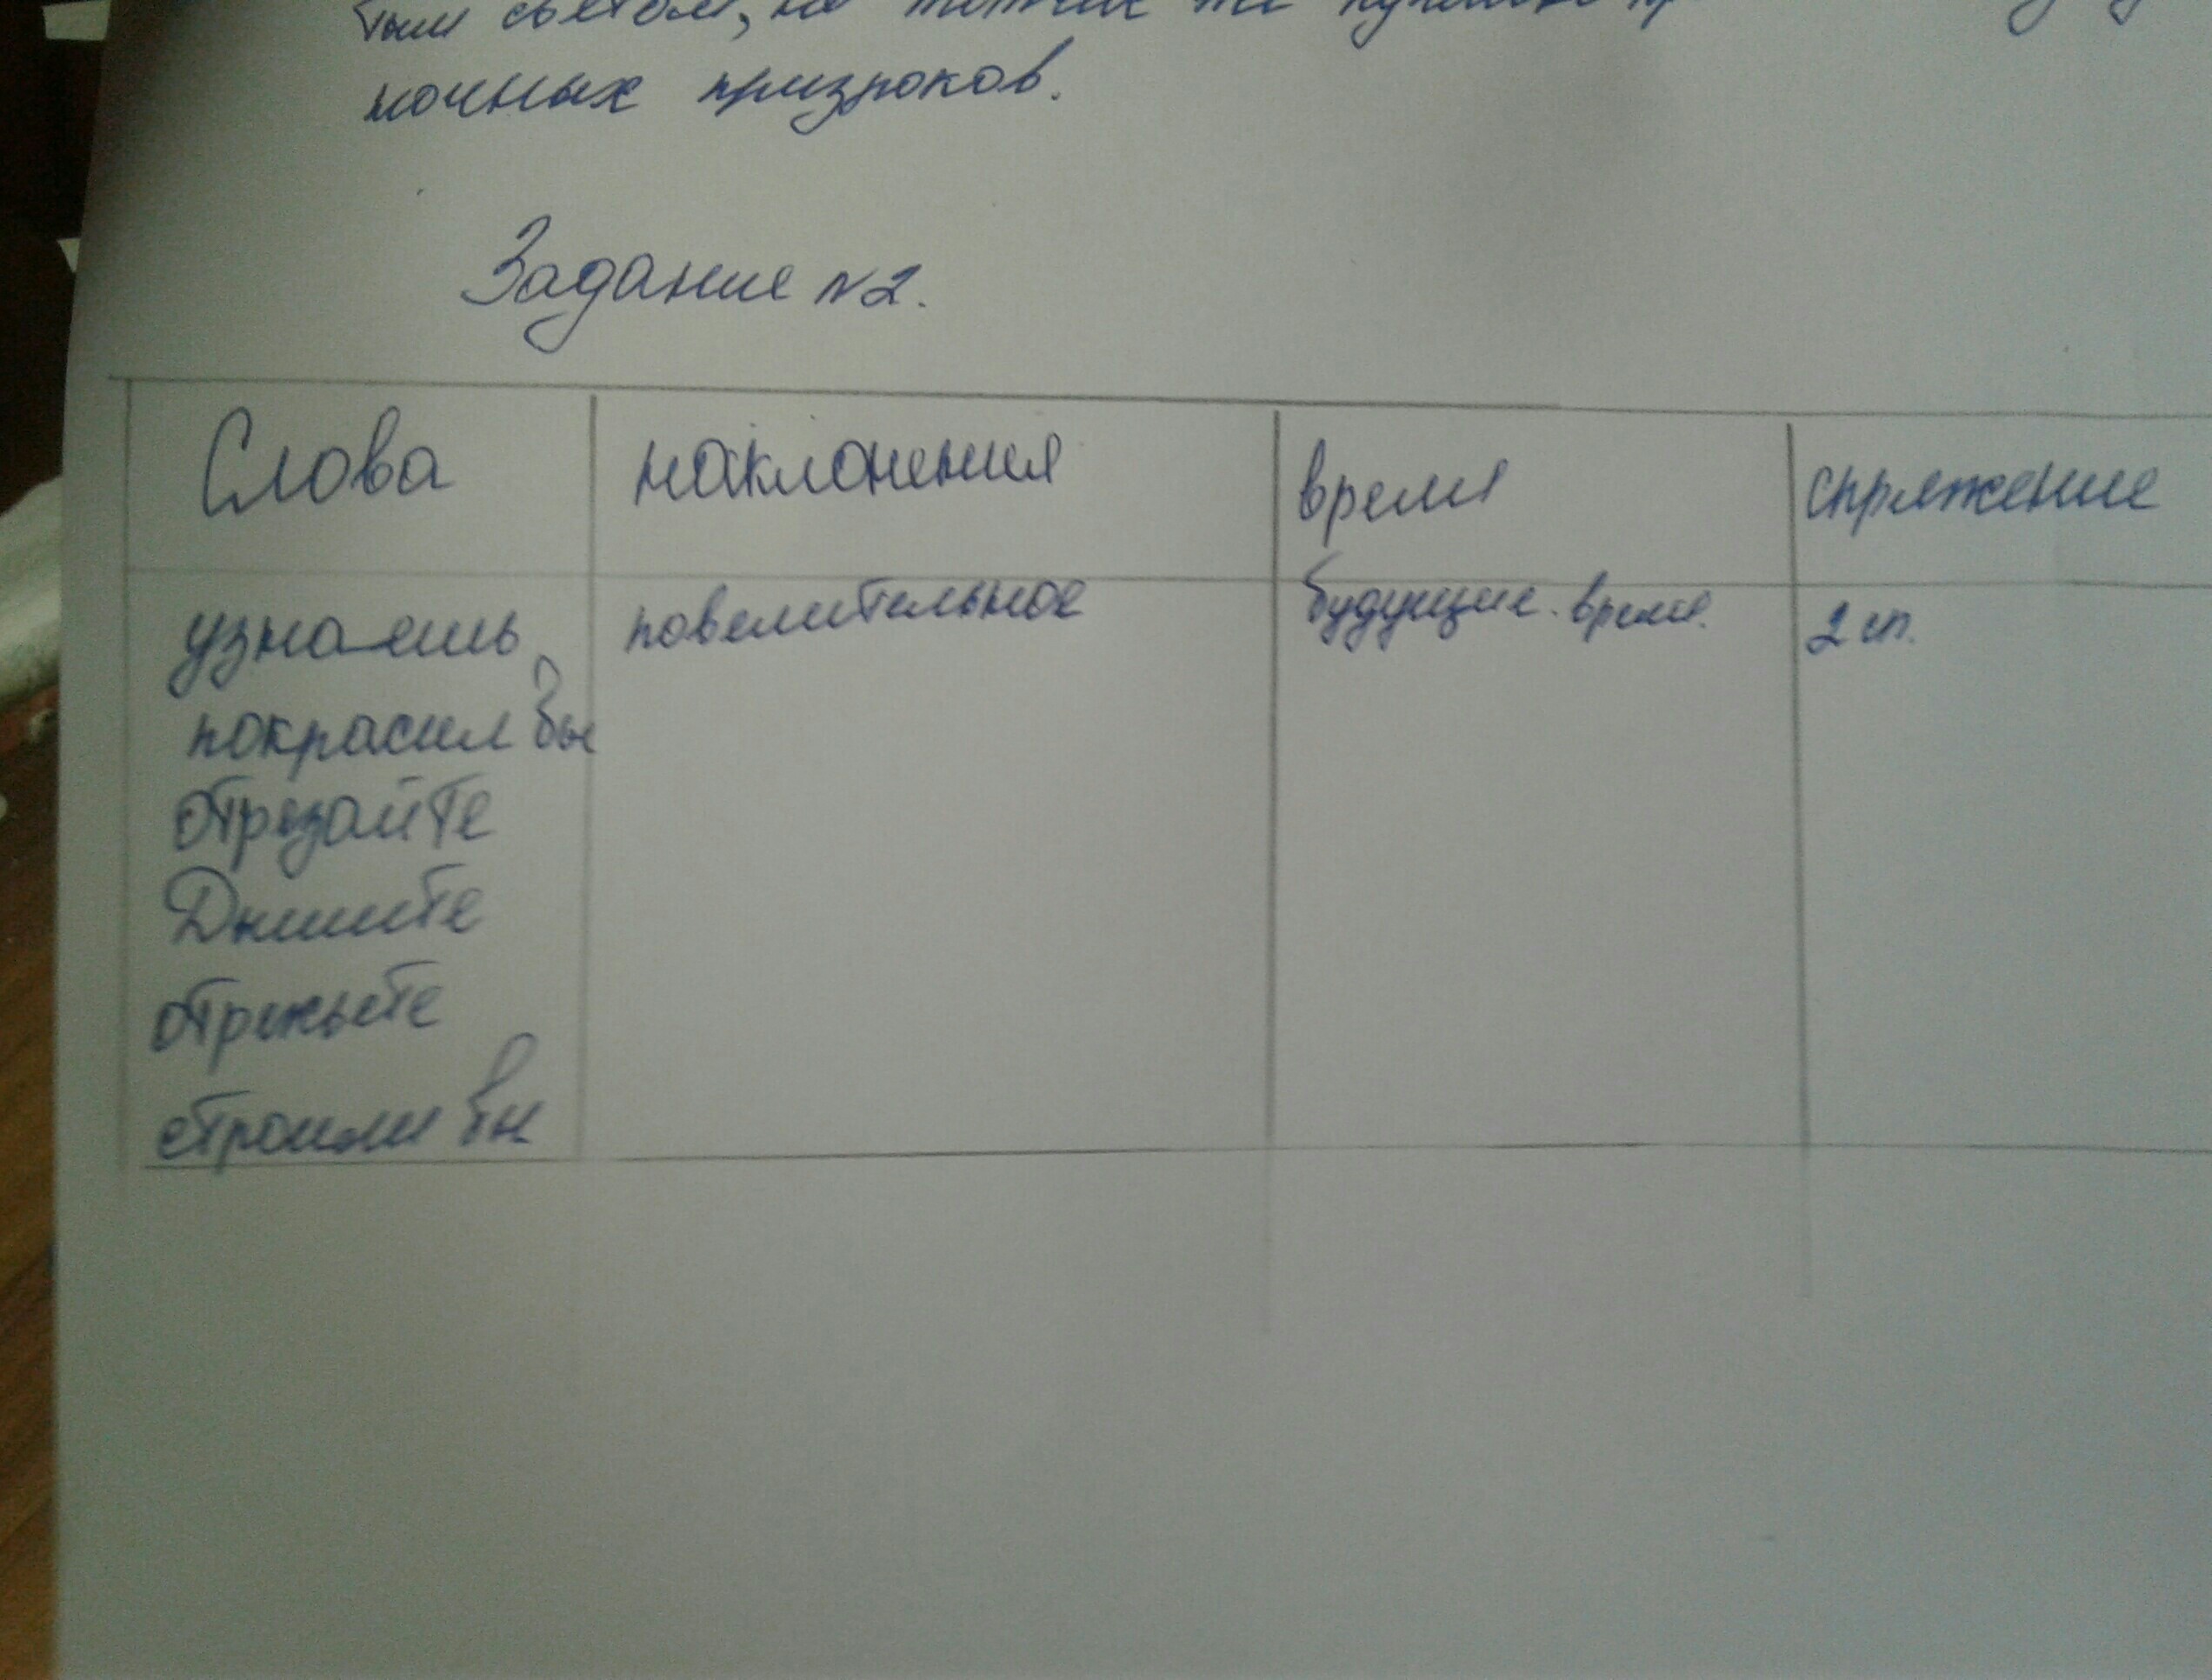 тым светом, но
ночных призраков.
Задание №2.
Слова наклонения время спряжение
узнаешь повелительное будущие. время. 2 сп.
покрасил бы
отрезайте
Дышите
отрежьте
строили бы